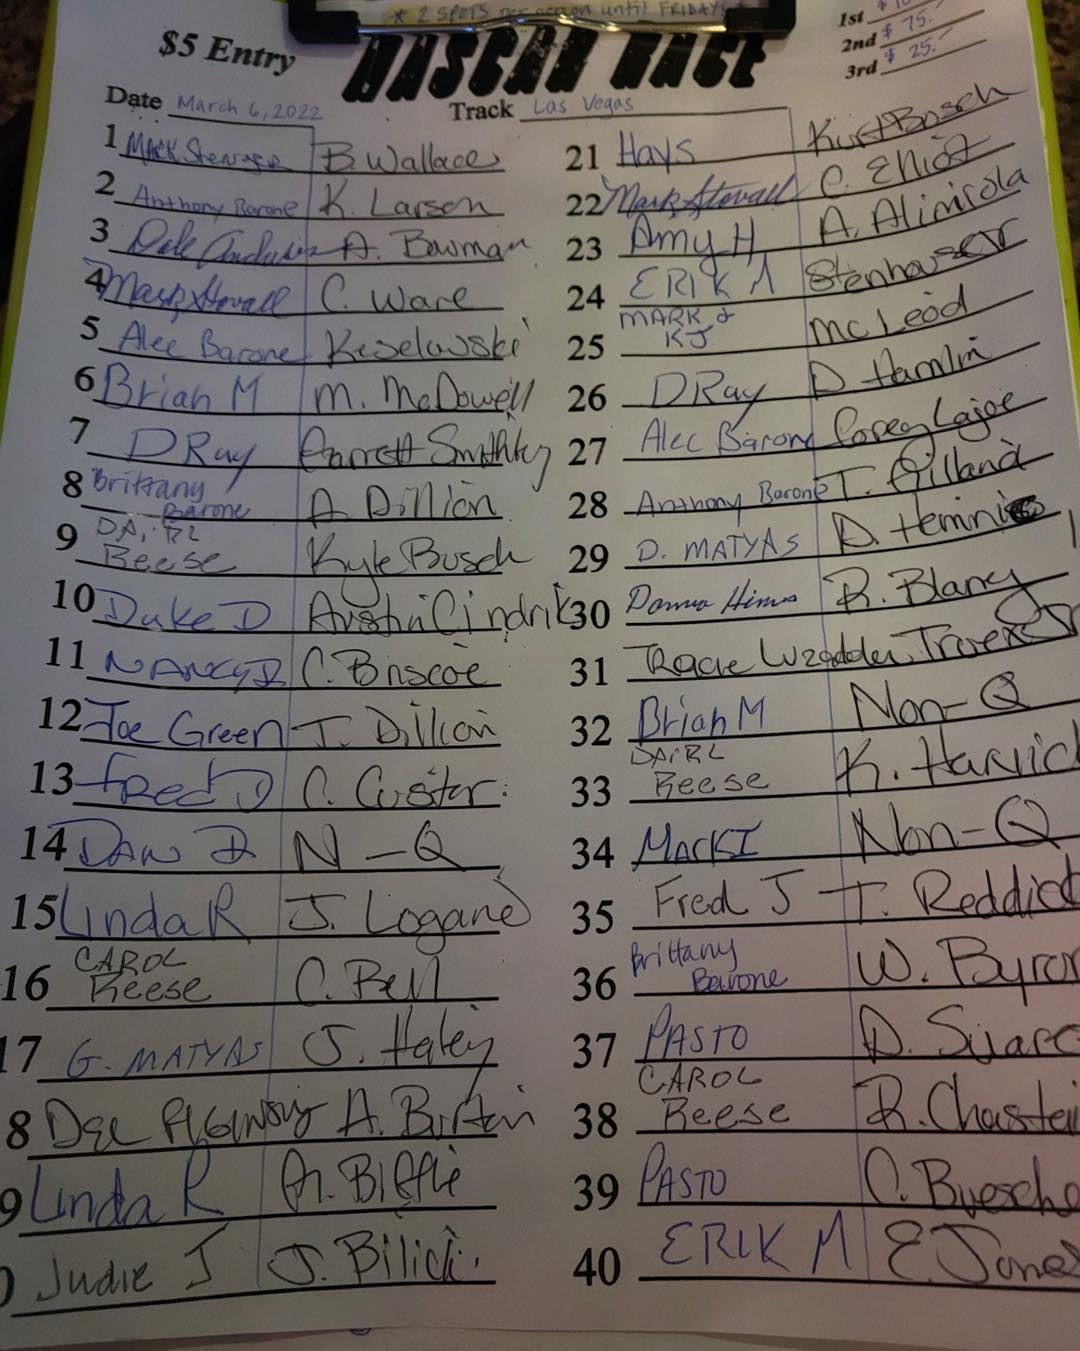 * 2 SPOTS per person until FRIDAYS *
$5 Entry
NASCAR RACE
1st $
2nd $ 75.-
3rd $ 25.-
Date March 6, 2022
Track Las Vegas
1 B. Wallace
2 Anthony Barone K. Larson
3 Dale A. Bowman
4 Mark Stovall C. Ware
5 Alec Barone Keselowski
6 Brian M M. McDowell
7 D Ray Garrett Smithley
8 Brittany Barone A. Dillion
9 Reese Kyle Busch
10 Duke D Austin Cindrik
11 NANCY D C. Briscoe
12 Joe Green T. Dillion
13 Fred D C. Custer
14 DAW D N-Q
15 Linda R J. Logano
16 CAROL Reese C. Bell
17 G. MATYAS J. Haley
8 Dee A. Burton
9 Linda R G. Biffle
0 Judie J J. Bilicki
21 Hays Kurt Busch
22 Mark Stovall C. Elliot
23 Amy H A. Alimirola
24 ERIK M Stenhouser
25 MARK & KJ McLeod
26 D Ray D Hamlin
27 Alec Barone Corey Lajoe
28 Anthony Barone T. Gilland
29 D. MATYAS D. Hemri
30 Donna Hims R. Blaney
31 Tracie
32 Brian M Non-Q
33 Reese K. Harvick
34 MACKI Non-Q
35 Fred J T. Reddick
36 Brittany Barone W. Byron
37 PASTO D. Suare
38 CAROL Reese R. Chastai
39 PASTO C. Buesche
40 ERIK M E. Jones